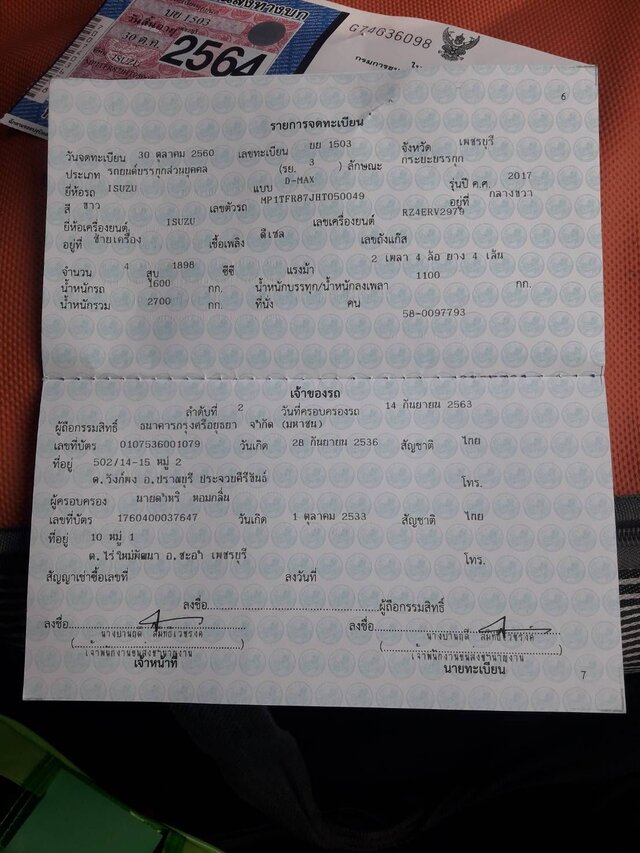 บย 1503
วันสิ้นอายุ
30 ต.ค. 2564
ISUZU
G74G36098
6
รายการจดทะเบียน
วันจดทะเบียน 30 ตุลาคม 2560 เลขทะเบียน บย 1503 จังหวัด เพชรบุรี
ประเภท รถยนต์บรรทุกส่วนบุคคล (รย. 3 ) ลักษณะ กระบะบรรทุก
ยี่ห้อรถ ISUZU แบบ D-MAX รุ่นปี ค.ศ. 2017
สี ขาว เลขตัวรถ MP1TFR87JHT050049 อยู่ที่ กลางขวา
ยี่ห้อเครื่องยนต์ ISUZU เลขเครื่องยนต์ RZ4ERV2979
อยู่ที่ ซ้ายเครื่อง เชื้อเพลิง ดีเซล เลขถังแก๊ส
จำนวน 4 สูบ 1898 ซีซี แรงม้า 2 เพลา 4 ล้อ ยาง 4 เส้น
น้ำหนักรถ 1600 กก. น้ำหนักบรรทุก/น้ำหนักลงเพลา 1100 กก.
น้ำหนักรวม 2700 กก. ที่นั่ง คน
58-0097793
เจ้าของรถ
ลำดับที่ 2 วันที่ครอบครองรถ 14 กันยายน 2563
ผู้ถือกรรมสิทธิ์ ธนาคารกรุงศรีอยุธยา จำกัด (มหาชน)
เลขที่บัตร 0107536001079 วันเกิด 28 กันยายน 2536 สัญชาติ ไทย
ที่อยู่ 502/14-15 หมู่ 2
ต.วังก์พง อ.ปราณบุรี ประจวบคีรีขันธ์ โทร.
ผู้ครอบครอง หอมกลิ่น
เลขที่บัตร 1760400037647 วันเกิด 1 ตุลาคม 2533 สัญชาติ ไทย
ที่อยู่ 10 หมู่ 1
ต.ไร่ใหม่พัฒนา อ.ชะอำ เพชรบุรี โทร.
สัญญาเช่าซื้อเลขที่ ลงวันที่
ลงชื่อ ผู้ถือกรรมสิทธิ์
ลงชื่อ ลงชื่อ
เจ้าพนักงานขนส่งชำนาญงาน เจ้าพนักงานขนส่งชำนาญงาน
เจ้าหน้าที่ นายทะเบียน
7